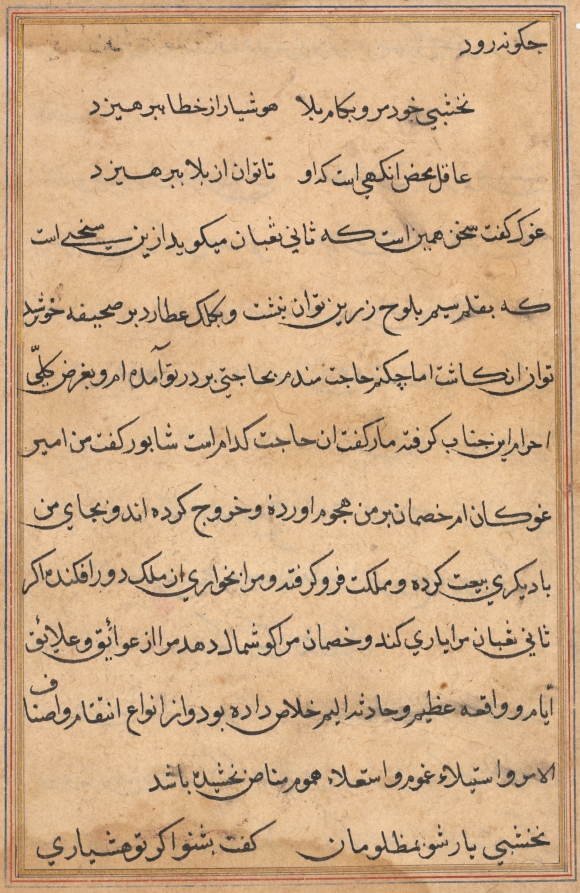 چکونه رود
نخشبی خود مرو بکام بلا هوشیار از خطا بپرهیزد
عاقل محض انکهی است که او تا توان از بلا بپرهیزد
غوک کفت سخن همین است که ثانی ثعبان میکوید ازین سخنے است
که بقلم سیم بلوح زرین توان نبشت و بکلک عطارد بر صحیفه خورشید
توان انکاشت اما چکنم حاجت مندم بحاجتی بر در تو آمده ام و بغرض کلّی
احرام این جناب کرفته مار کفت ان حاجت کدام است شابور کفت من امیر
غوکان ام خصمان بر من هجوم اورده و خروج کرده اند و بجای من
با دیکری بیعت کرده و مملکت فرو کرفته و مرا بخواری از ملک دور افکنده اکر
ثانی ثعبان مرا یاری کند و خصمان مرا کوشمال دهد مرا از عوائق و علایق
ایّام و واقعه عظیم و حادثه الیم خلاص داده بود و از انواع انتقام و اصناف
الام و استیلاء غموم و استعلاء هموم مناص بخشیده باشد
نخشبی یار شو بمظلومان کفت بشنو اکر تو هشیاری